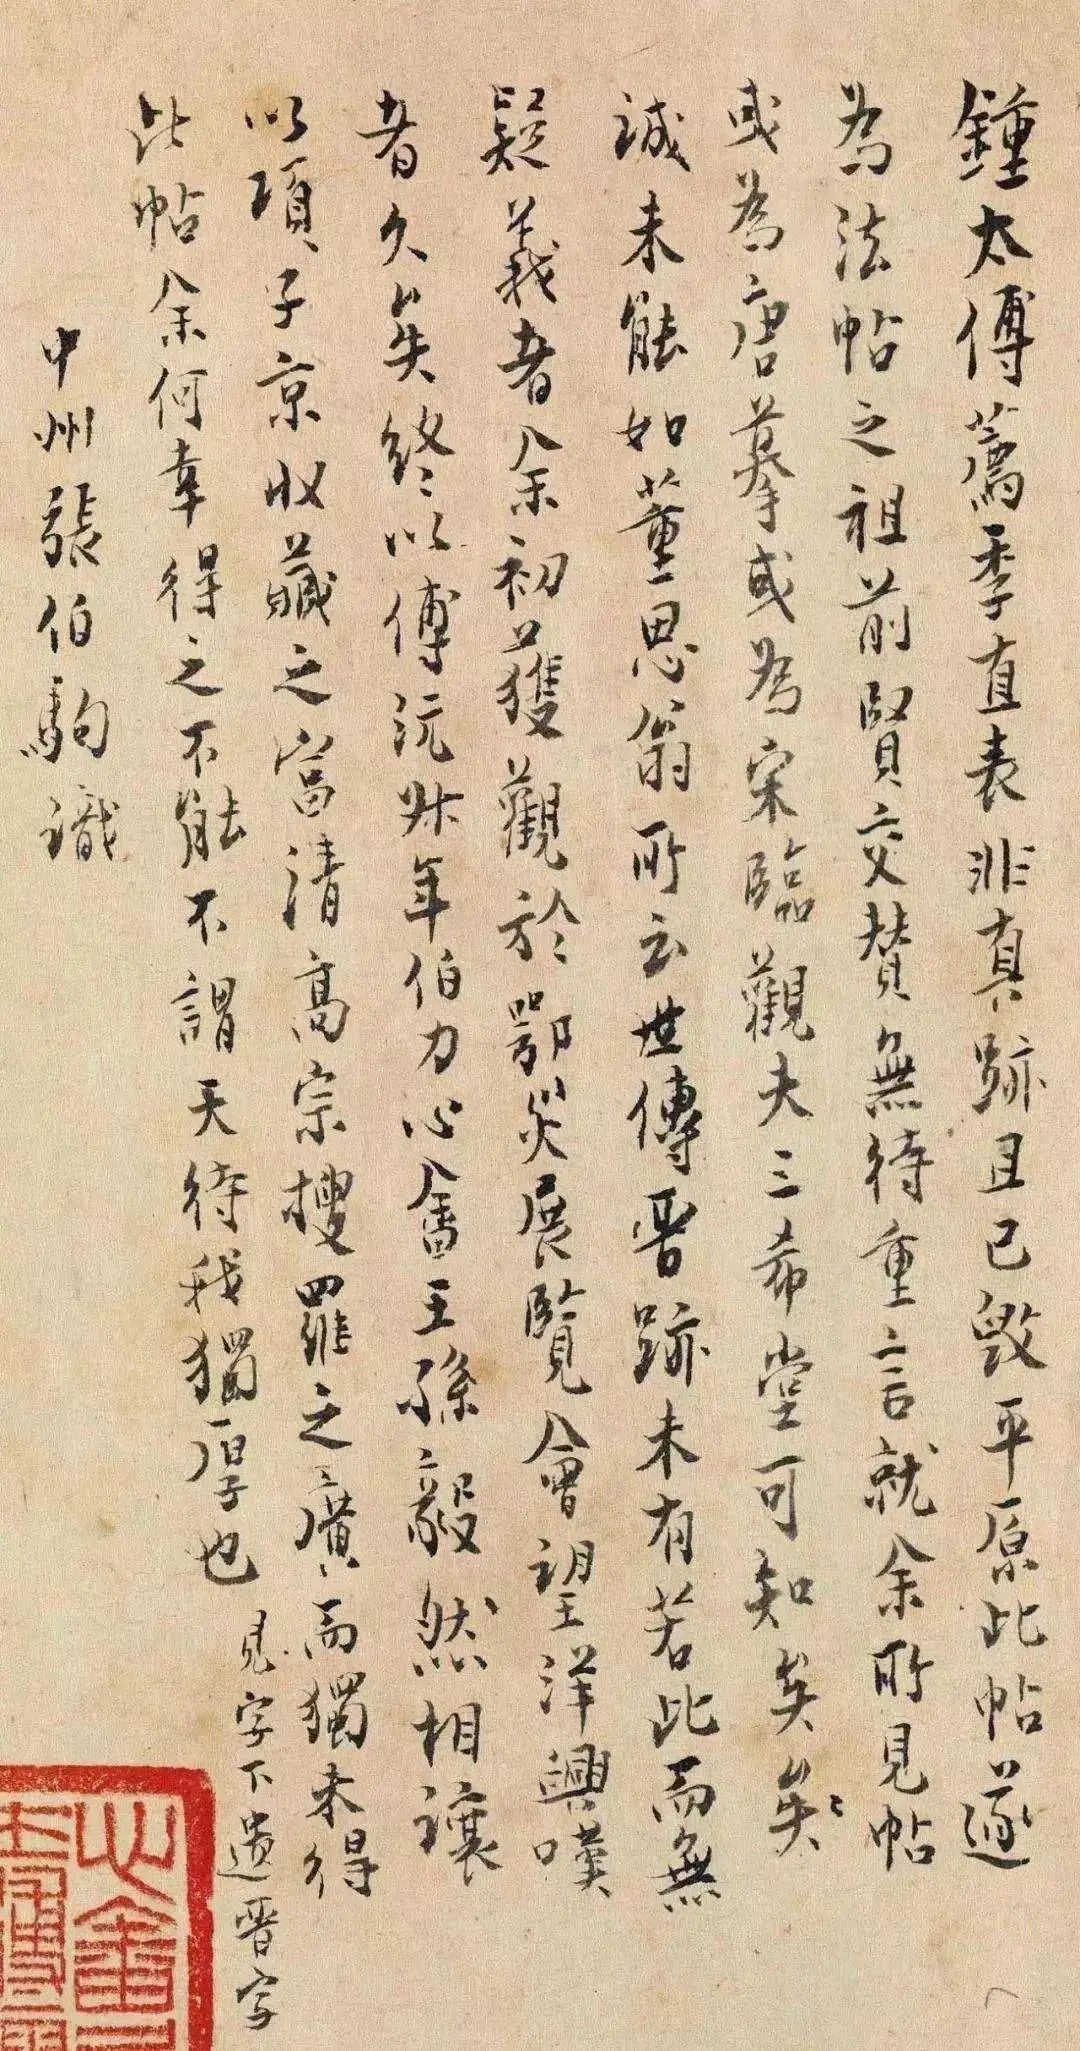 鍾太傅薦季直表非真跡且已毀平原此帖遂
為法帖之祖前賢交贊無待重言就余所見帖
或為唐摹或為宋臨觀夫三希堂可知矣矣〻
誠未能如董思翁所云世傳晋跡未有若此而無
疑義者余初獲觀於鄂災展覽會望洋興嘆
者久矣終以傅沅叔年伯力心畬王孫毅然相讓
以項子京收藏之富清高宗搜羅之廣而獨未得
此帖余何幸得之不能不謂天待我獨厚也
見字下遺晋字
中州張伯駒識